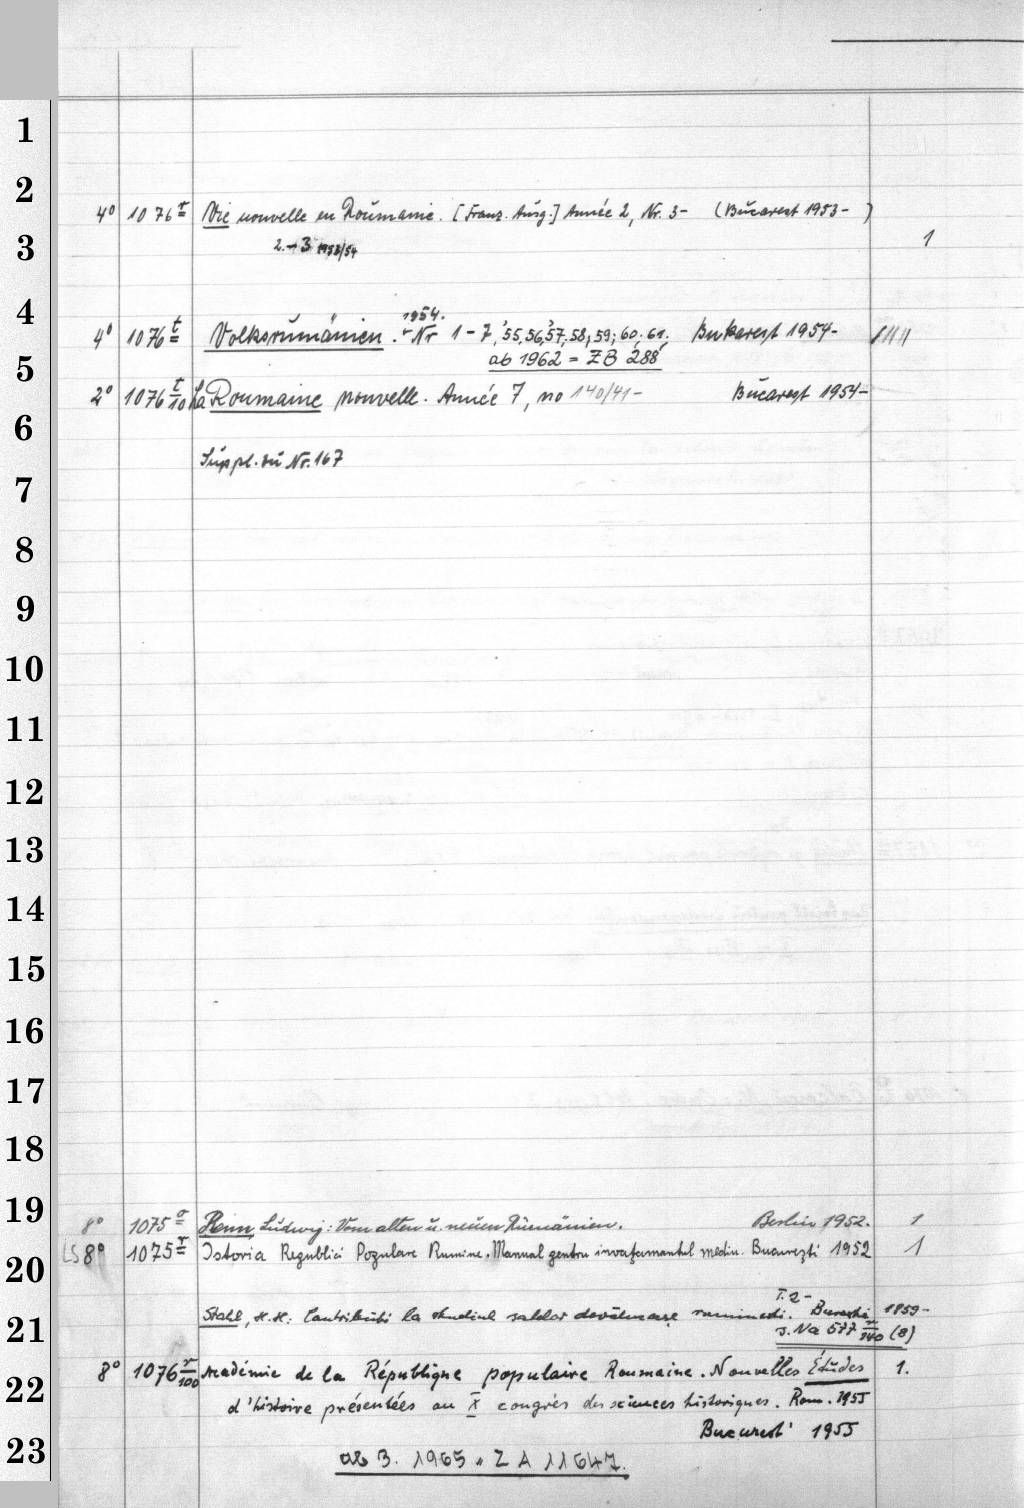 1
2
4° 1076 r Vie nouvelle en Roumanie. [Franz. Ausg.] Année 2, Nr. 3- (Bucarest 1953- )
3
2.-3 1953/54 1
4
1954.
4° 1076 t Volksrumänien. Nr 1-7, '55, 56, '57, 58, 59; 60; 61. Bukarest 1954-
5
ab 1962 = ZB 288
2° 1076 t/10 La Roumaine nouvelle. Année 7, no 140/41- Bucarest 1954-
6
Suppl. zu Nr. 167
7
8
9
10
11
12
13
14
15
16
17
18
19
8° 1075 Renn, Ludwig: Vom alten u. neuen Rumänien. Berlin 1952. 1
LS 8° 1075 r Istoria Republici Populare Romine. Manual pentru invatamantul mediu. Bucureşti 1952 1
20
T. 2-
Stahl, H. H: Contributii la studiul satelor devălmaşe 1959-
21
s. Na 577 r/240 (8)
8° 1076 r/100 Académie de la République populaire Roumaine. Nouvelles Études 1.
22
d'histoire présentées au X congrès des sciences historiques. Rom. 1955
Bucarest 1955
23
ab 3. 1965 = Z A 11647.